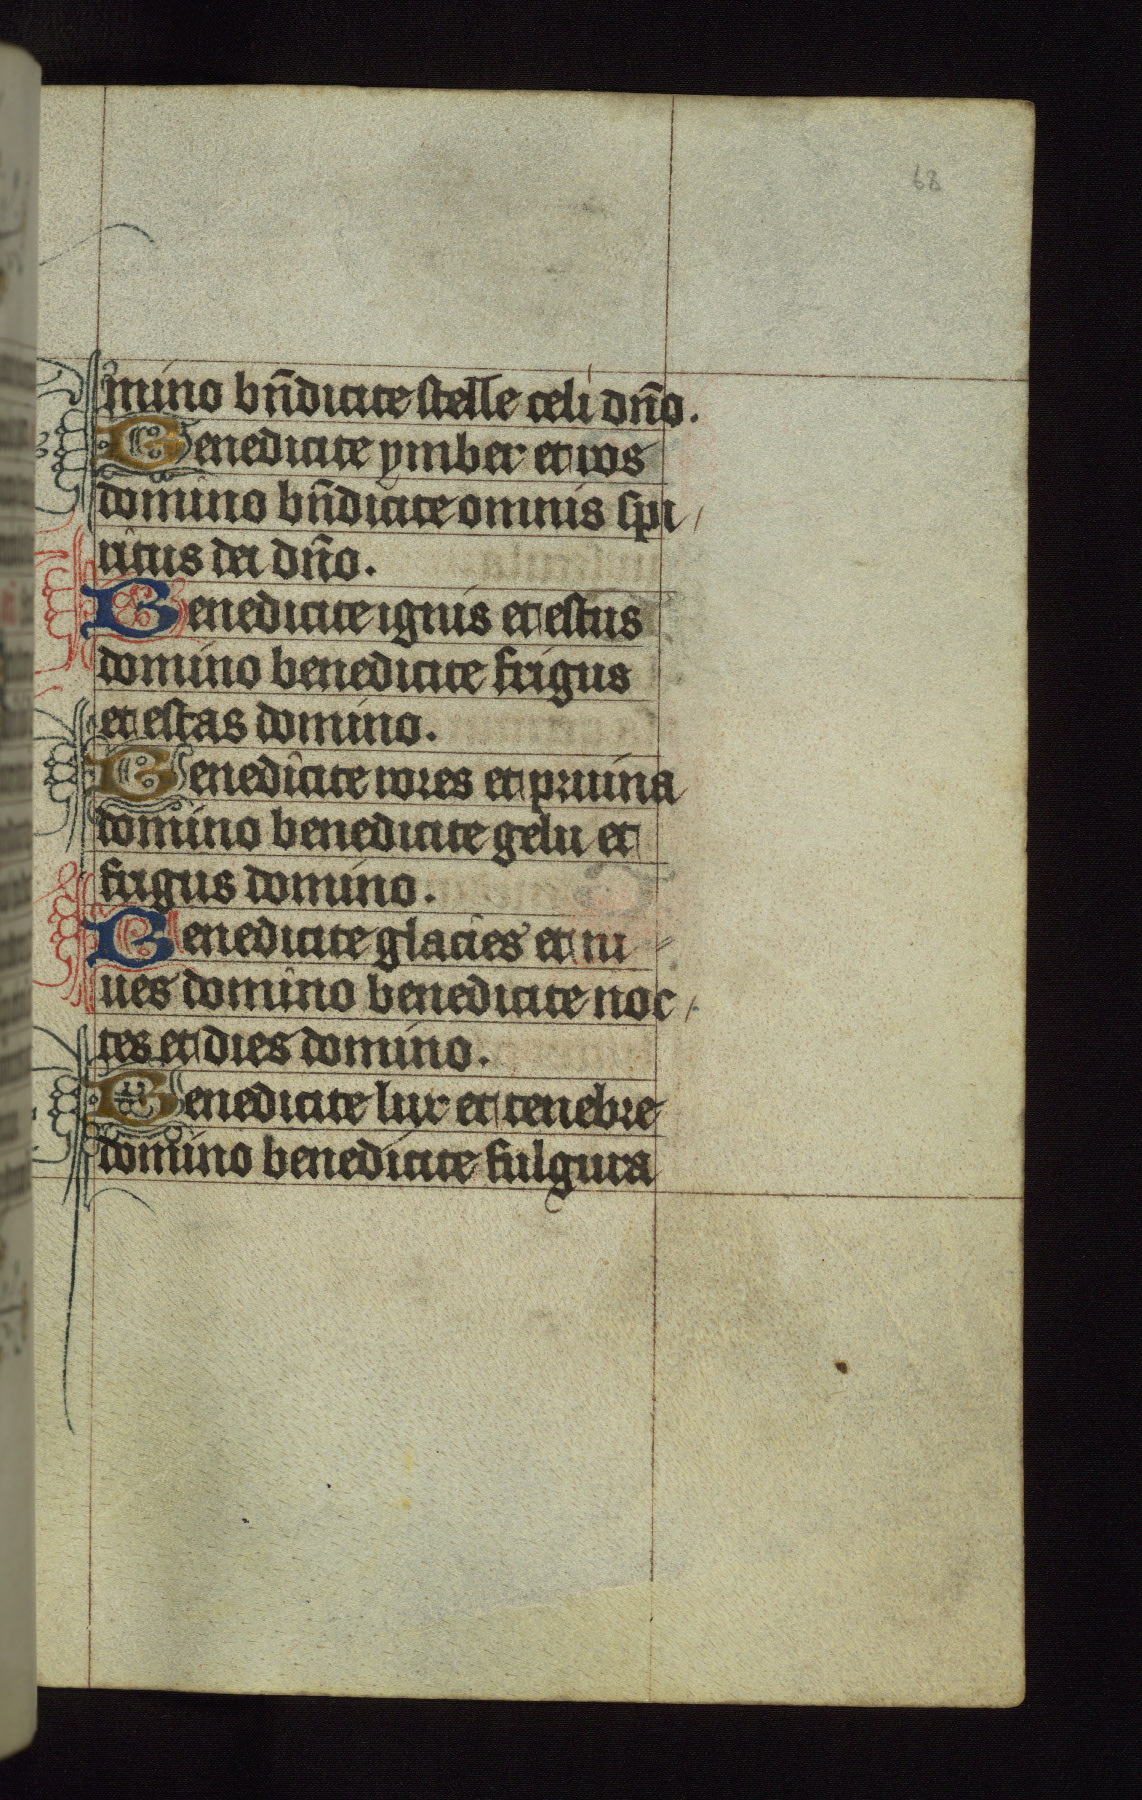 68
mino bñdicite stelle celi dño.
Benedicite ymber et ros
domino bñdicite omnis spi
ritus dei dño.
Benedicite ignis et estus
domino benedicite frigus
et estas domino.
Benedicite rores et pruina
domino benedicite gelu et
frigus domino.
Benedicite glacies et ni
ues domino benedicite noc
tes et dies domino.
Benedicite lux et tenebre
domino benedicite fulgura